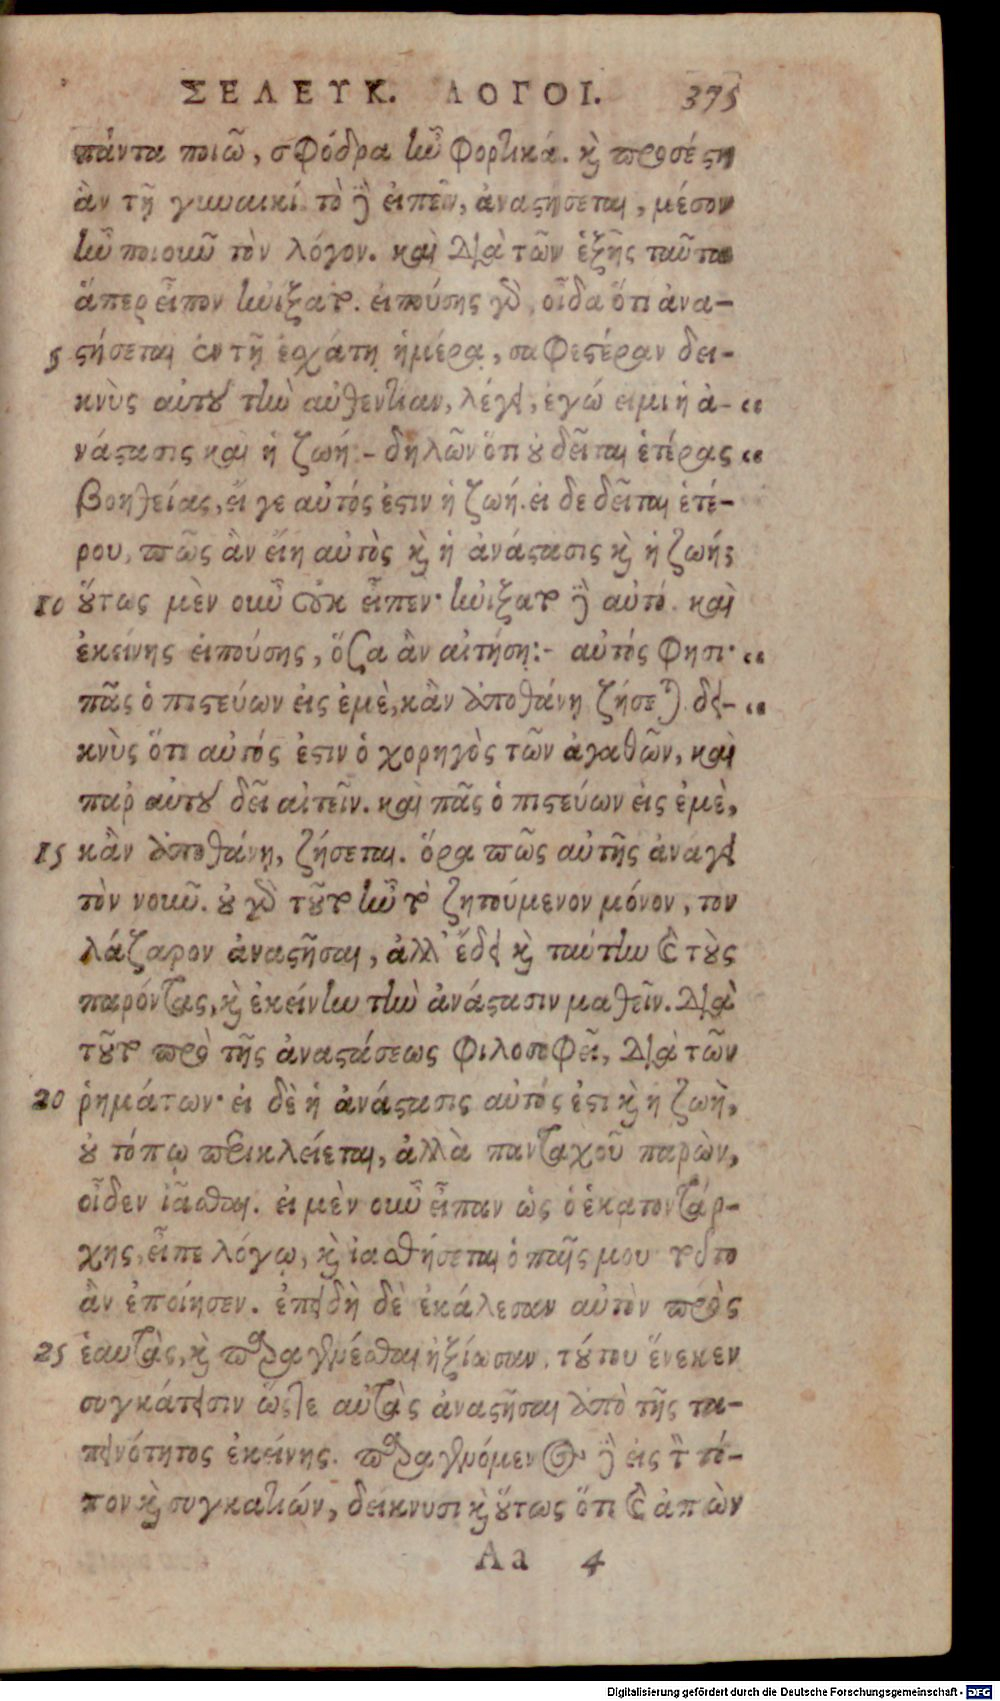 ΣΕΛΕΥΚ. ΛΟΓΟΙ. 375
πάντα ποιῶ, σφόδρα ἦν φορτικά. καὶ προσέστη
ἂν τῇ γυναικί. τὸ δὲ εἰπεῖν, ἀναστήσεται, μέσον
ἦν ποιοῦν τὸν λόγον. καὶ διὰ τῶν ἑξῆς ταῦτα
ἅπερ εἶπον ᾐνίξατο. εἰπούσης γὰρ, οἶδα ὅτι ἀνα-
5 στήσεται ἐν τῇ ἐσχάτῃ ἡμέρᾳ, σαφεστέραν δει-
κνὺς αὐτοῦ τὴν αὐθεντίαν, λέγει, ἐγώ εἰμι ἡ ἀ- “
νάστασις καὶ ἡ ζωή:- δηλῶν ὅτι οὐ δεῖται ἑτέρας “
βοηθείας, εἴ γε αὐτός ἐστιν ἡ ζωή. εἰ δε δεῖται ἑτέ-
ρου, πῶς ἂν εἴη αὐτὸς καὶ ἡ ἀνάστασις καὶ ἡ ζωή;
10 οὕτως μὲν οὖν οὐκ εἶπεν· ᾐνίξατο δὲ αὐτό. καὶ
ἐκείνης εἰπούσης, ὅσα ἂν αἰτήσῃ:- αὐτός φησι· “
πᾶς ὁ πιστεύων εἰς ἐμὲ, κἂν ἀποθάνῃ ζήσεται. δει- “
κνὺς ὅτι αὐτός ἐστιν ὁ χορηγὸς τῶν ἀγαθῶν, καὶ
παρ αὐτοῦ δεῖ αἰτεῖν. καὶ πᾶς ὁ πιστεύων εἰς ἐμὲ,
15 κἂν ἀποθάνῃ, ζήσεται. ὅρα πῶς αὐτῆς ἀνάγει
τὸν νοῦν. οὐ γὰρ τοῦτο ἦν τὸ ζητούμενον μόνον, τον
λάζαρον ἀναστῆσαι, ἀλλ' ἔδει καὶ ταύτην καὶ τοὺς
παρόντας, καὶ ἐκείνην τὴν ἀνάστασιν μαθεῖν. διὰ
τοῦτο πρὸ τῆς ἀναστάσεως φιλοσοφεῖ, διὰ τῶν
20 ῥημάτων· εἰ δὲ ἡ ἀνάστασις αὐτός ἐστι καὶ ἡ ζωὴ,
οὐ τόπῳ περικλείεται, ἀλλὰ πανταχοῦ παρὼν,
οἶδεν ἰᾶσθαι. εἰ μὲν οὖν εἶπαν ὡς ὁ ἑκατοντάρ-
χης, εἶπε λόγῳ, καὶ ἰαθήσεται ὁ παῖς μου τοῦτο
ἂν ἐποίησεν. ἐπειδὴ δὲ ἐκάλεσαν αὐτὸν πρὸς
25 ἑαυτὰς, καὶ παραγενέσθαι ἠξίωσαν, τούτου ἕνεκεν
συγκάτεισιν ὥστε αὐτὰς ἀναστῆσαι ἀπὸ τῆς τα-
πεινότητος ἐκείνης. παραγενόμενος δὲ εἰς τὸν τό-
πον καὶ συγκατιών, δείκνυσι καὶ οὕτως ὅτι καὶ ἀπὼν
Aa 4
Digitalisierung gefördert durch die Deutsche Forschungsgemeinschaft - DFG